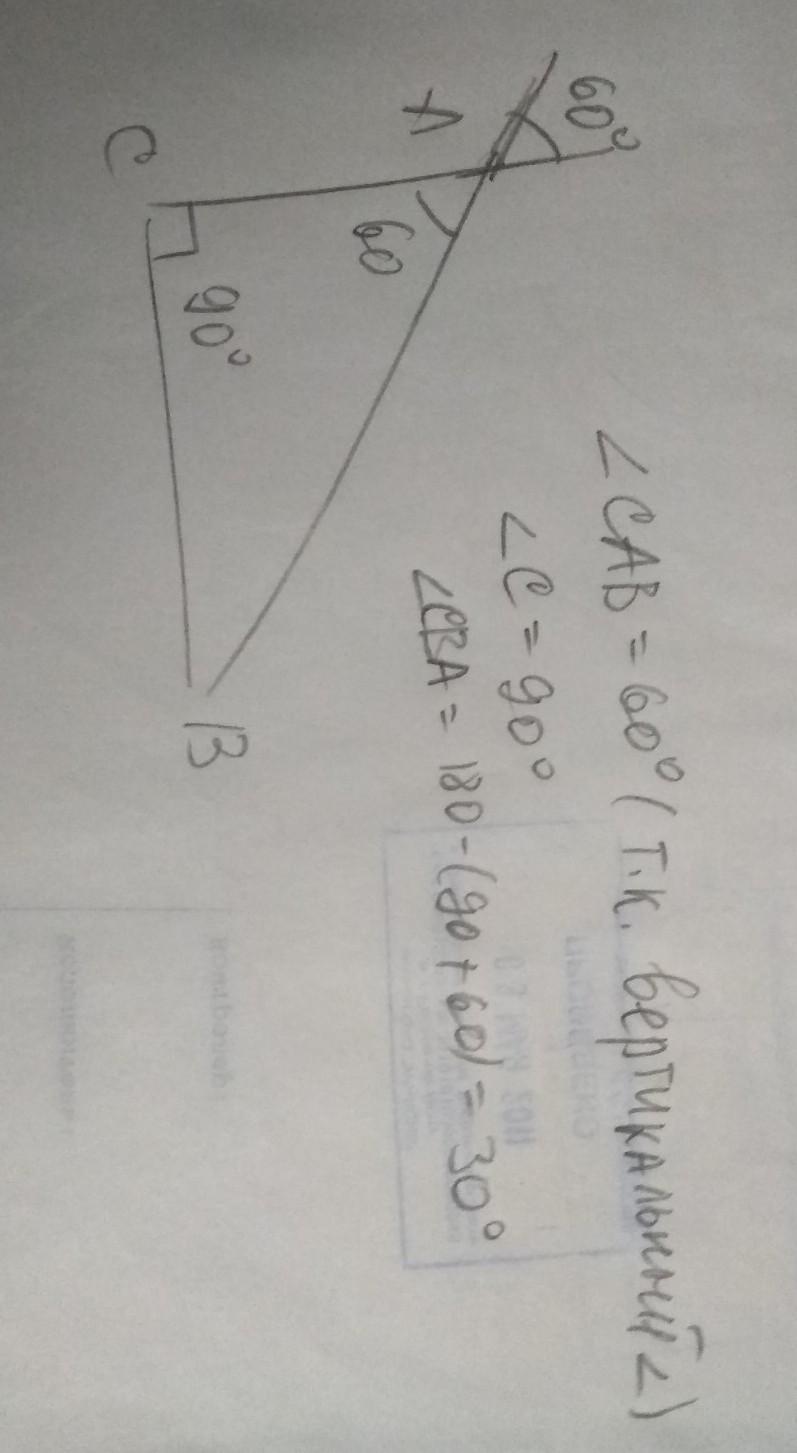 60°
A
60
C
90°
B
∠CAB = 60° (т.к. вертикальный ∠)
∠C = 90°
∠CBA = 180 - (90 + 60) = 30°